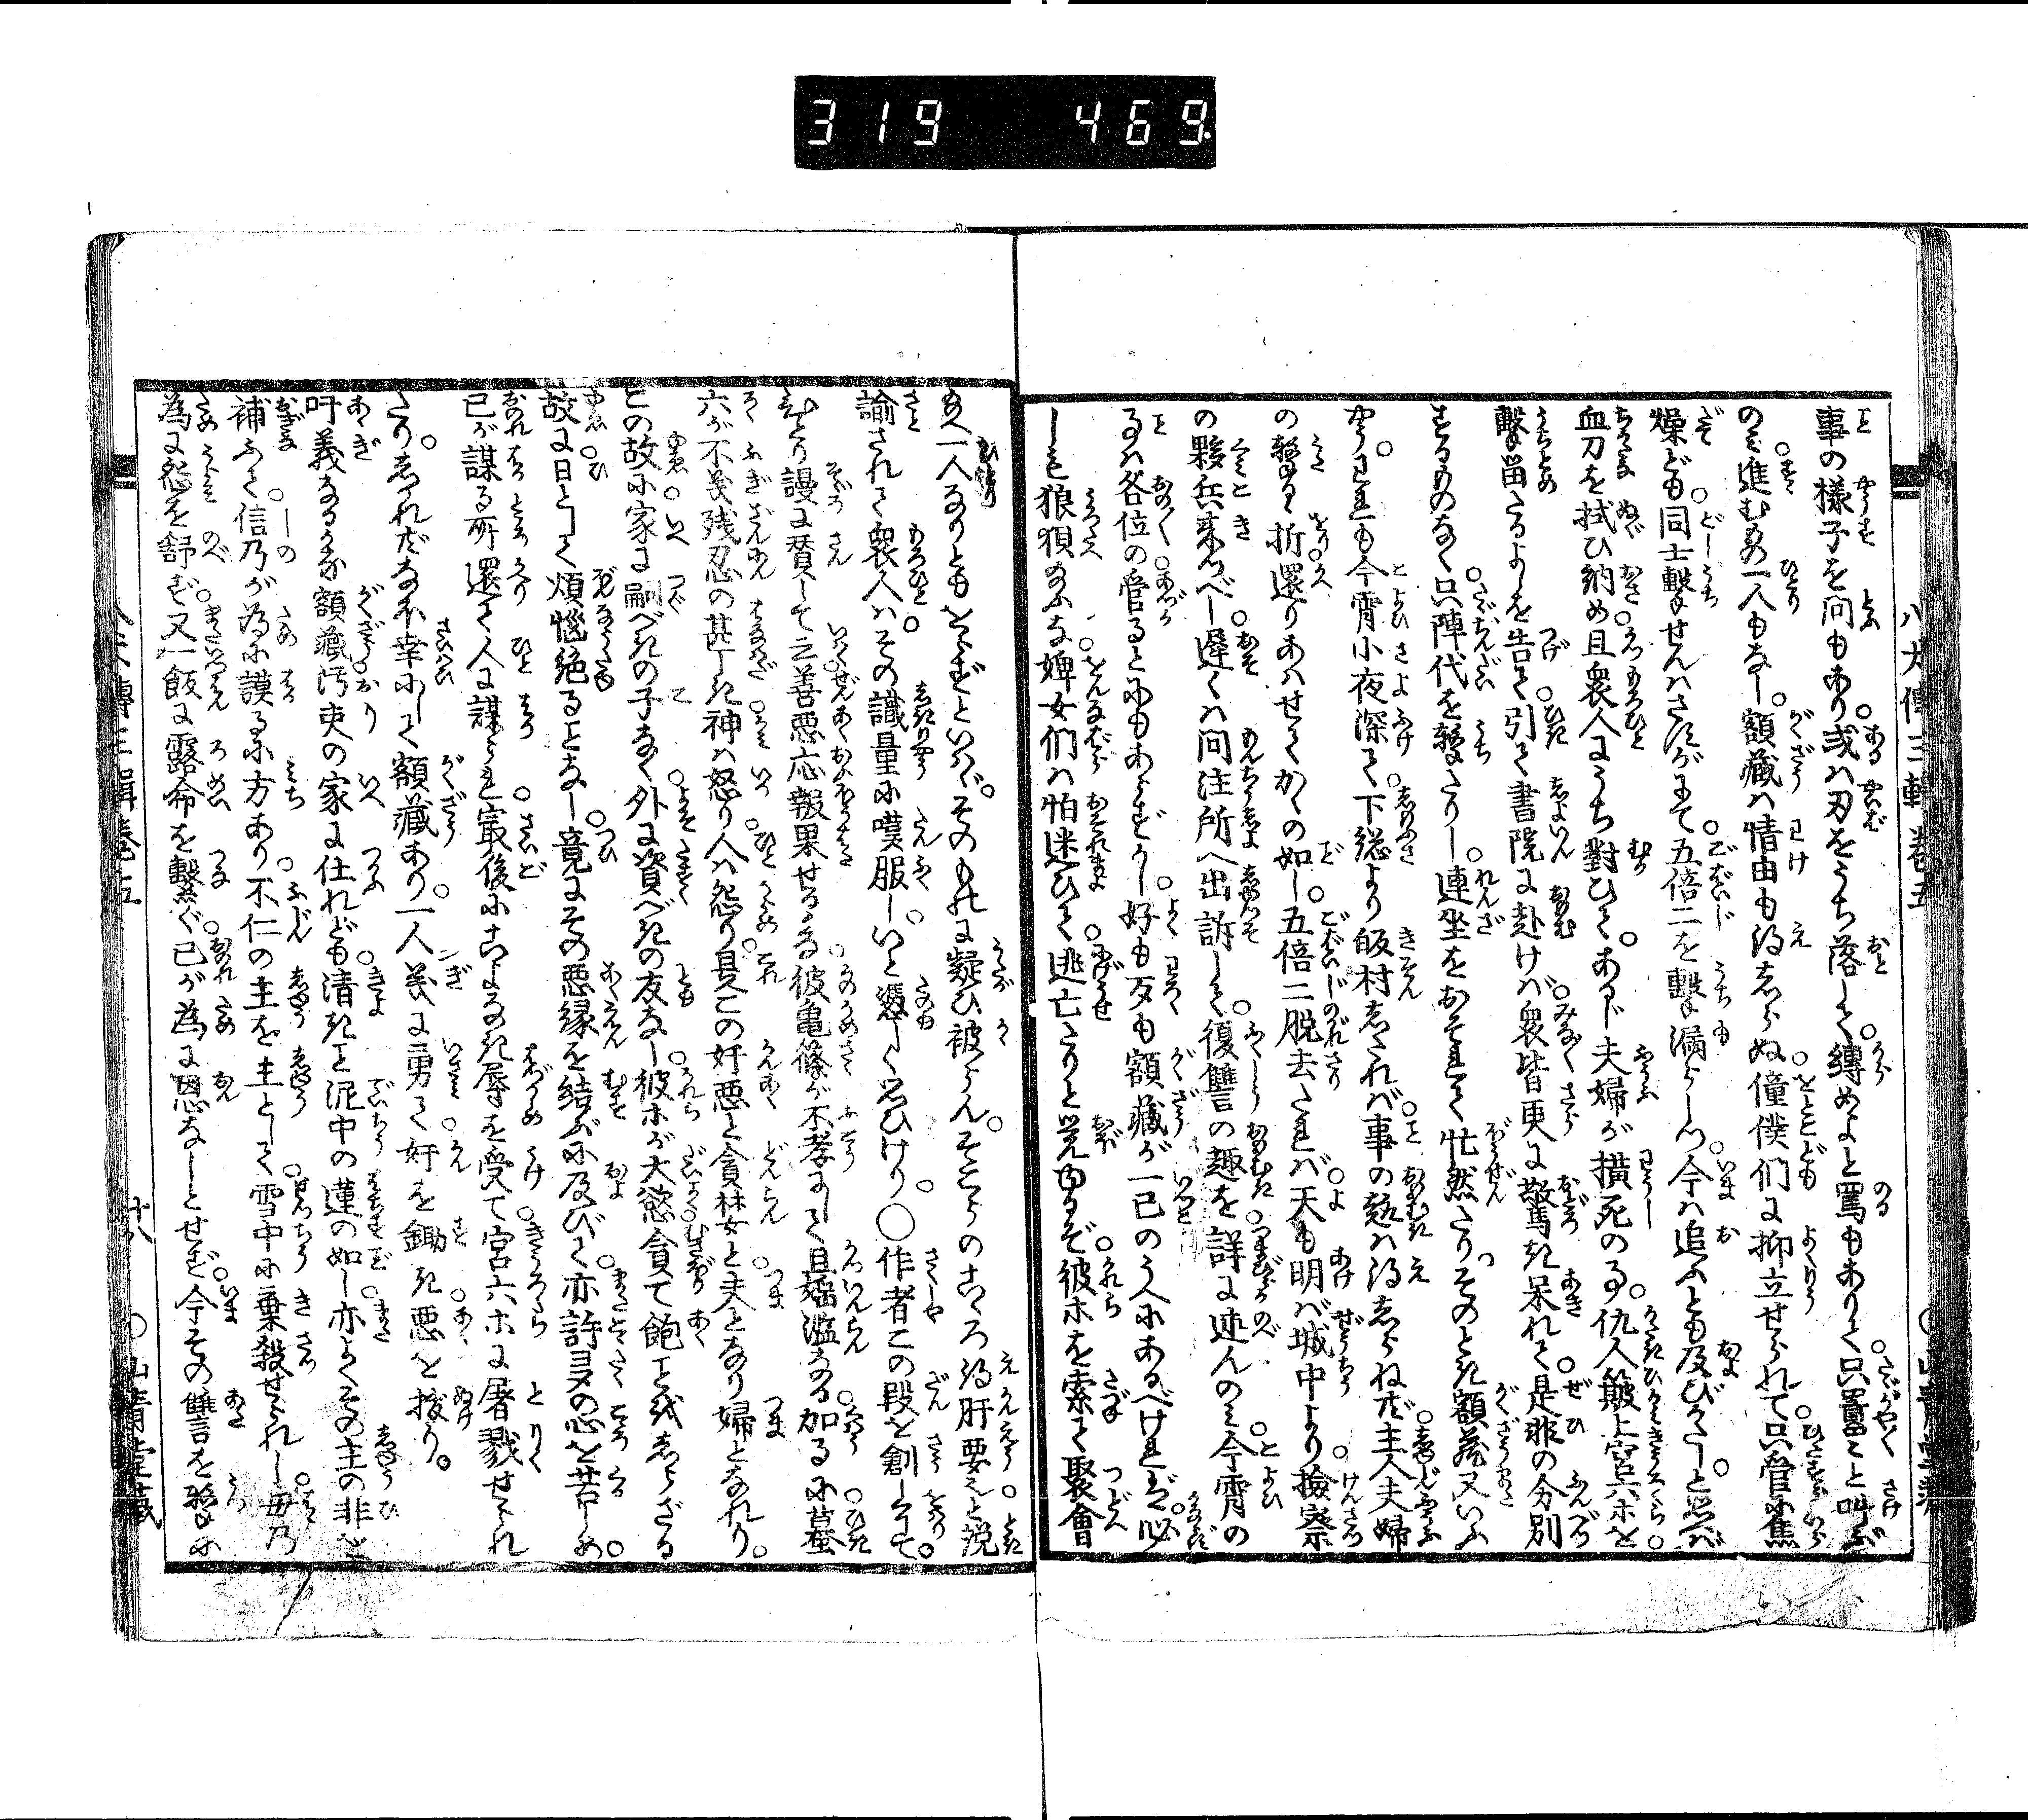 319 469.
八犬傳三輯巻五
○山青堂藏
事の様子を問もあり。或ハ刃をうち落して。縛めよと罵もありて。只囂々と叫ぶ
のミ進むもの一人もなし。額藏ハ情由も得しらぬ僮僕們に抑立せられて。只管に焦
燥ども。同士撃せんハさすがにて。五倍二を撃漏らしつ。今ハ追ふとも及びがたしと思へバ
血刀を拭ひ納め。且衆人にうち對ひて。あるじ夫婦が横死の事。仇人簸上宮六ホを
撃畄たるよしを告て。引て書院に赴けバ。衆皆更に驚き呆れて。是非の分別
するものなく。只陣代を撃たりし。連坐をおそれて忙然たり。そのとき額藏又いふ
やう。われも今宵小夜深て。下総より皈村したれバ。事の趣ハ得しらねど。主人夫婦
の撃るゝ折還りあハせてかくの如し。五倍二脱去たれバ。天も明バ城中より。撿察
の夥兵来つべし。遅くハ問注所へ出訴して。復讐の趣を。詳に述んのミ。今宵の
事ハ各位の。管るとにもあらずかし。好も歹も額藏が一己のうへにあるべけれど。必
しも狼狽給ふな。婢女們ハ怕迷ひて。逃亡たりと覚ゆるぞ。彼ホを索て聚會
給へ。一人なりともをらずといハヾ。そのものに疑ひ被らん。そこらのこゝろ得肝要と。説
諭されて衆人ハ。その識量に嘆服し。いと憑しく思ひけり。○作者この段を創し了て。
ひとり謾に賛して云。善悪応報果せるかな。彼亀篠が不孝にして。且婬濫なる。加るに蟇
六が不義残忍の甚しき。神ハ怒り人ハ怨り。是この奸悪と貪婪女と。夫となり婦となれり。
この故に家に嗣べきの子なく。外に資べきの友なし。彼ホが大慾貪て飽ことをしらざる
故に。日として煩惱絶ることなし。竟にその悪縁を結ぶに及びて。亦許多の心を苦しめ。
己が謀る所還て人に謀られ。最後にかゝる辱を受て。宮六ホに屠戮せられ
たり。しかれども不幸にして額藏あり。一人義に勇て奸を鋤き悪を掻り。
吁義なるかな額藏。汚吏の家に仕れども。清きこと泥中の蓮の如し。亦よくその主の非を
補ふて。信乃が為に謨るに方あり。不仁の主を主として。雪中に棄殺せられし。母乃
為に怨を舒ず。又一飯に露命を繋ぐ。己が為に恩なしとせず。今その讐を撃に
八犬傳三輯巻五
廿八
○山青堂藏